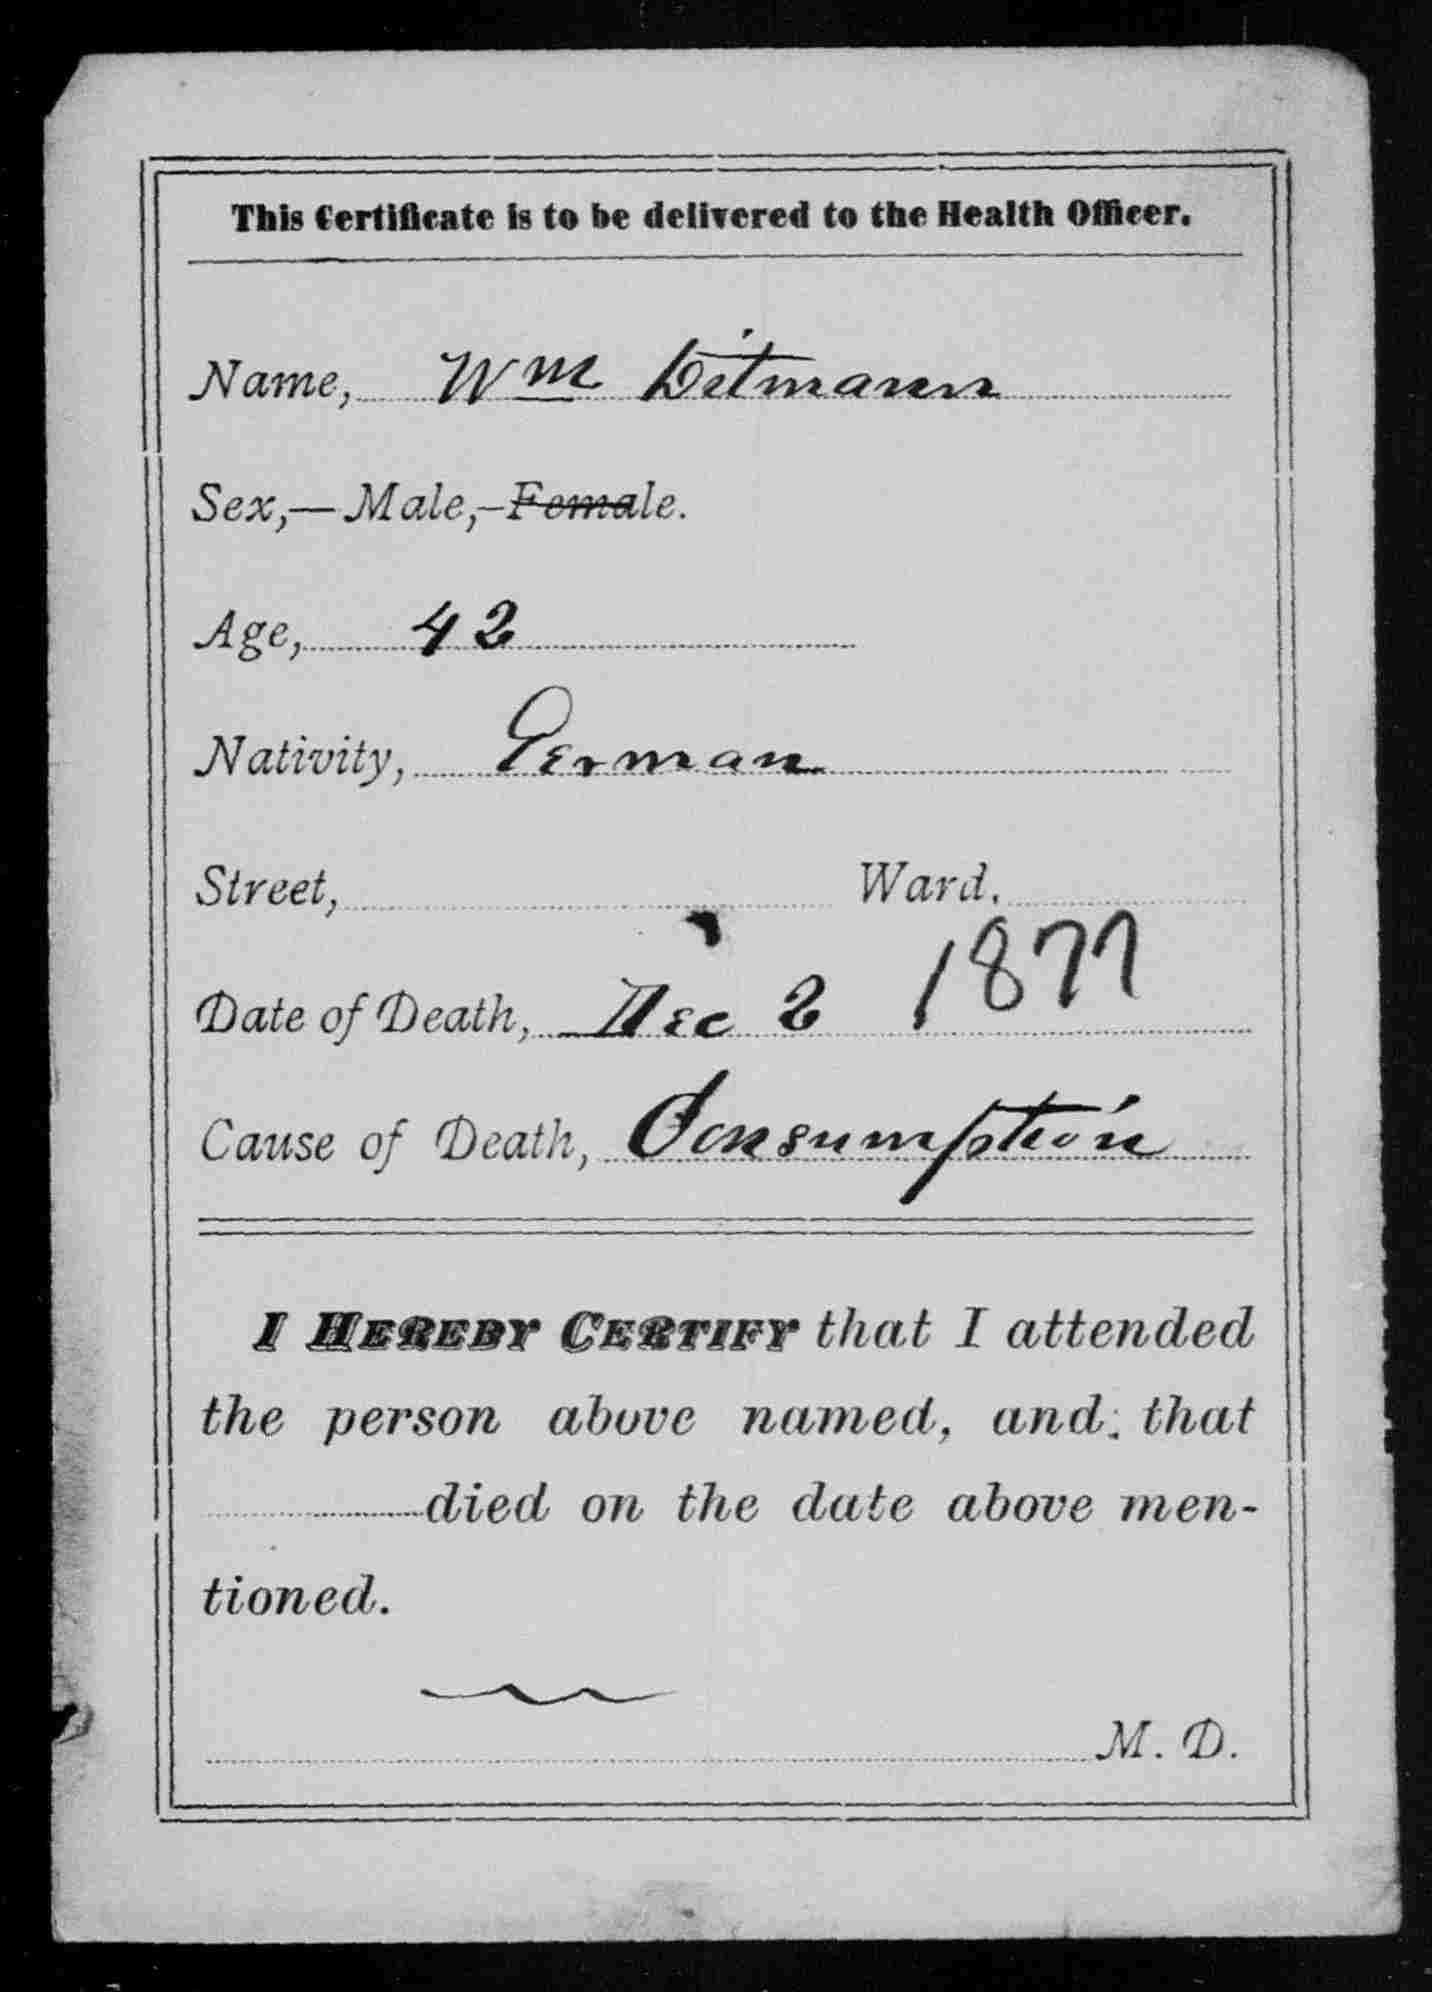 This Certificate is to be delivered to the Health Officer.
Name, Wm Ditmann
Sex,—Male,–Female.
Age, 42
Nativity, German
Street, Ward.
Date of Death, Dec 2 1877
Cause of Death, Consumption
I HEREBY CERTIFY that I attended
the person above named, and that
died on the date above men-
tioned.
M. D.